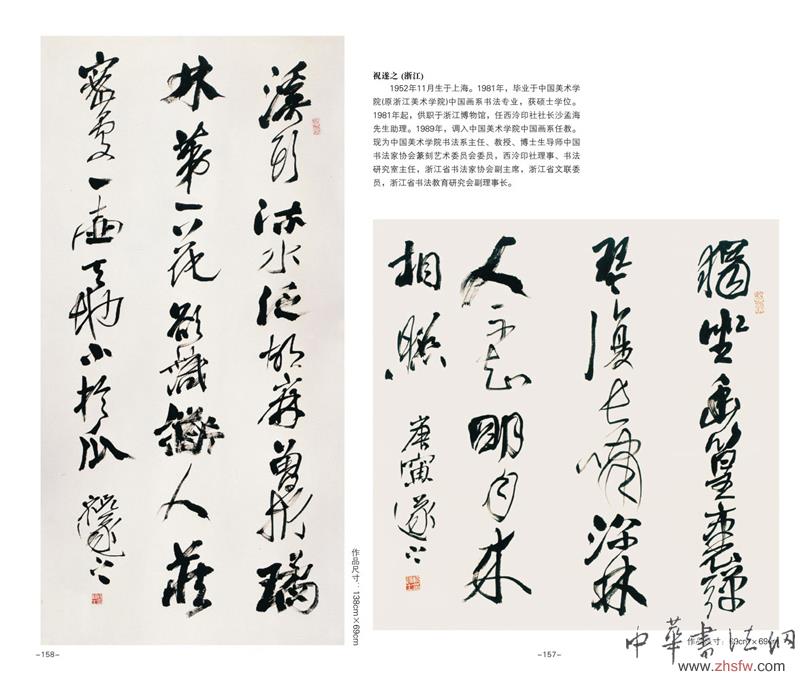 溪頭流水泛胡麻曾折璚
林第一花欲識道人藏
密處一壺天地小於瓜 祝遂之
作品尺寸：138cm×69cm
-158-
祝遂之 (浙江)
1952年11月生于上海。1981年，毕业于中国美术学
院(原浙江美术学院)中国画系书法专业，获硕士学位。
1981年起，供职于浙江博物馆，任西泠印社社长沙孟海
先生助理。1989年，调入中国美术学院中国画系任教。
现为中国美术学院书法系主任、教授、博士生导师中国
书法家协会篆刻艺术委员会委员，西泠印社理事、书法
研究室主任，浙江省书法家协会副主席，浙江省文联委
员，浙江省书法教育研究会副理事长。
獨坐幽篁裏彈
琴復長嘯深林
人不知明月來
相照 庚寅遂之
作品尺寸：69cm×69cm
-157-
中華書法網
www.zhsfw.com